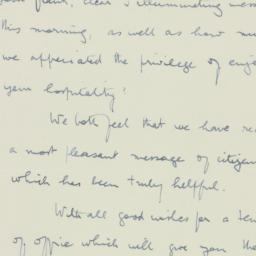 clear & illuminating mess
this morning, as well as how mu
we appreciated the privilege of enjo
your hospitality!
We both feel that we have re
a most pleasant message of citizen
which has been truly helpful.
With all good wishes for a ten
of office which will give you the